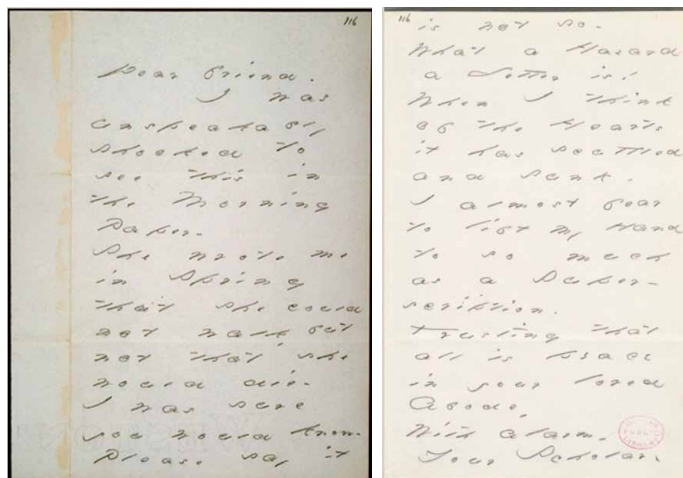 116
Dear friend.
I was
unspeakably
shocked to
see this in
the Morning
Paper -
She wrote me
in Spring
that she could
not walk, but
not that she
would die -
I was sure
you would know.
Please say it
116
is not so.
What a Hazard
a Letter is!
When I think
of the Hearts
it has scuttled
and sunk.
I almost fear
to lift my Hand
to so much
as a Super-
scription.
Trusting that
all is peace
in your loved
Abode,
With alarm,
Your Scholar.